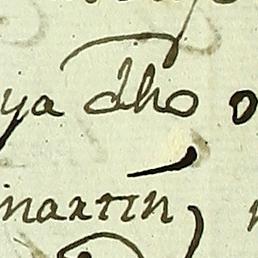 ya dho o
martin